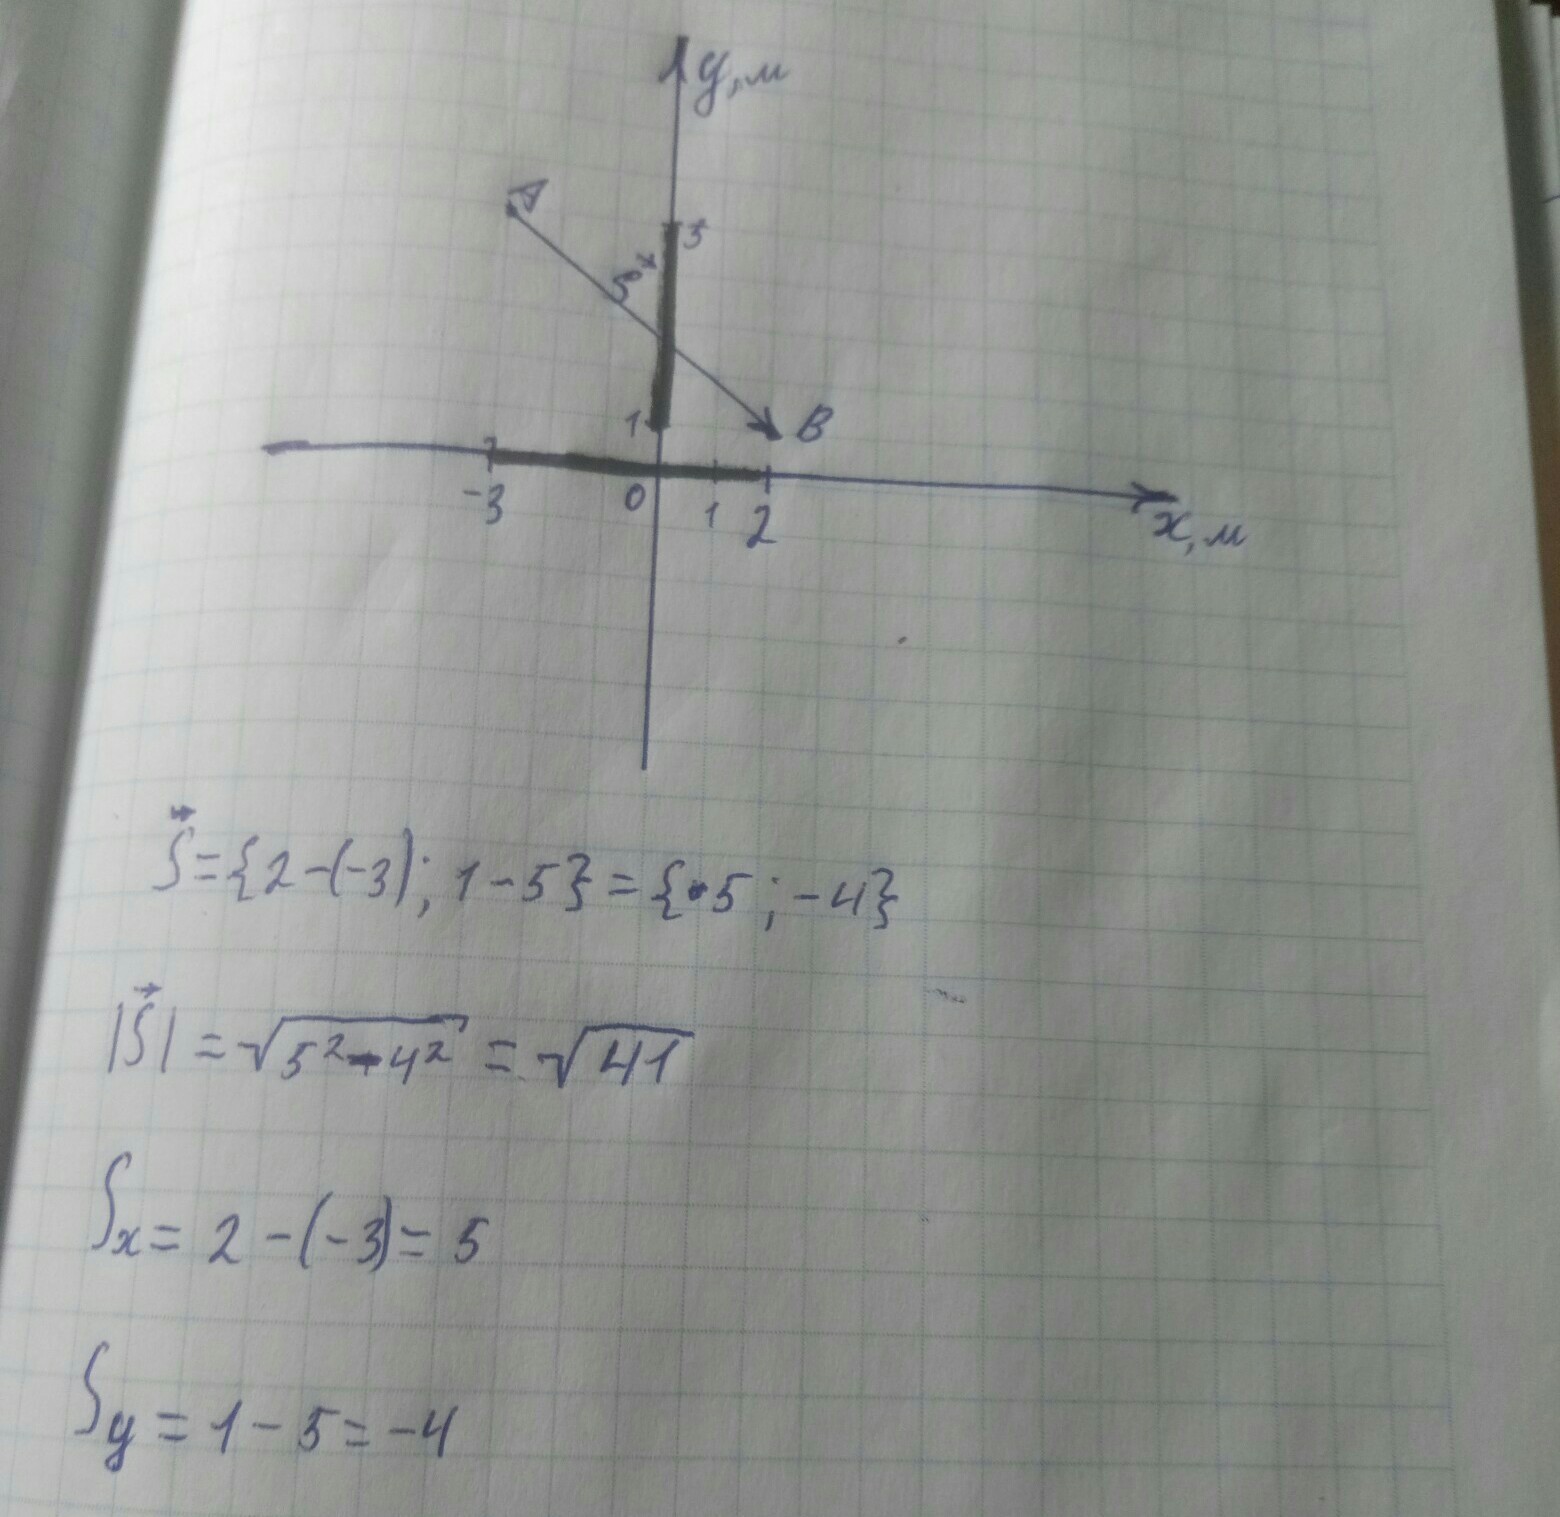 y, м
A
5
S⃗
1
B
-3 0 1 2
x, м
S⃗ = {2-(-3); 1-5} = {5; -4}
|S⃗| = √5²+4² = √41
Sx = 2-(-3) = 5
Sy = 1-5 = -4